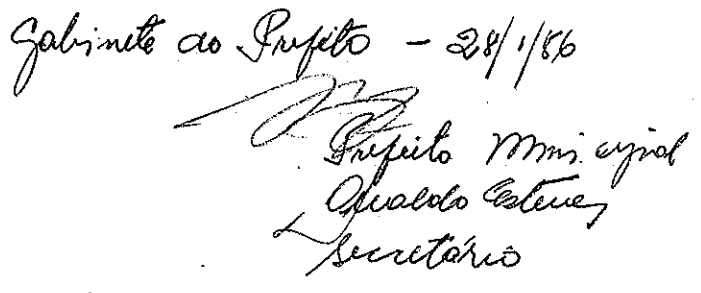 Gabinete do Prefeito - 28/1/86
Prefeito Municipal
Osvaldo Esteves
Secretário